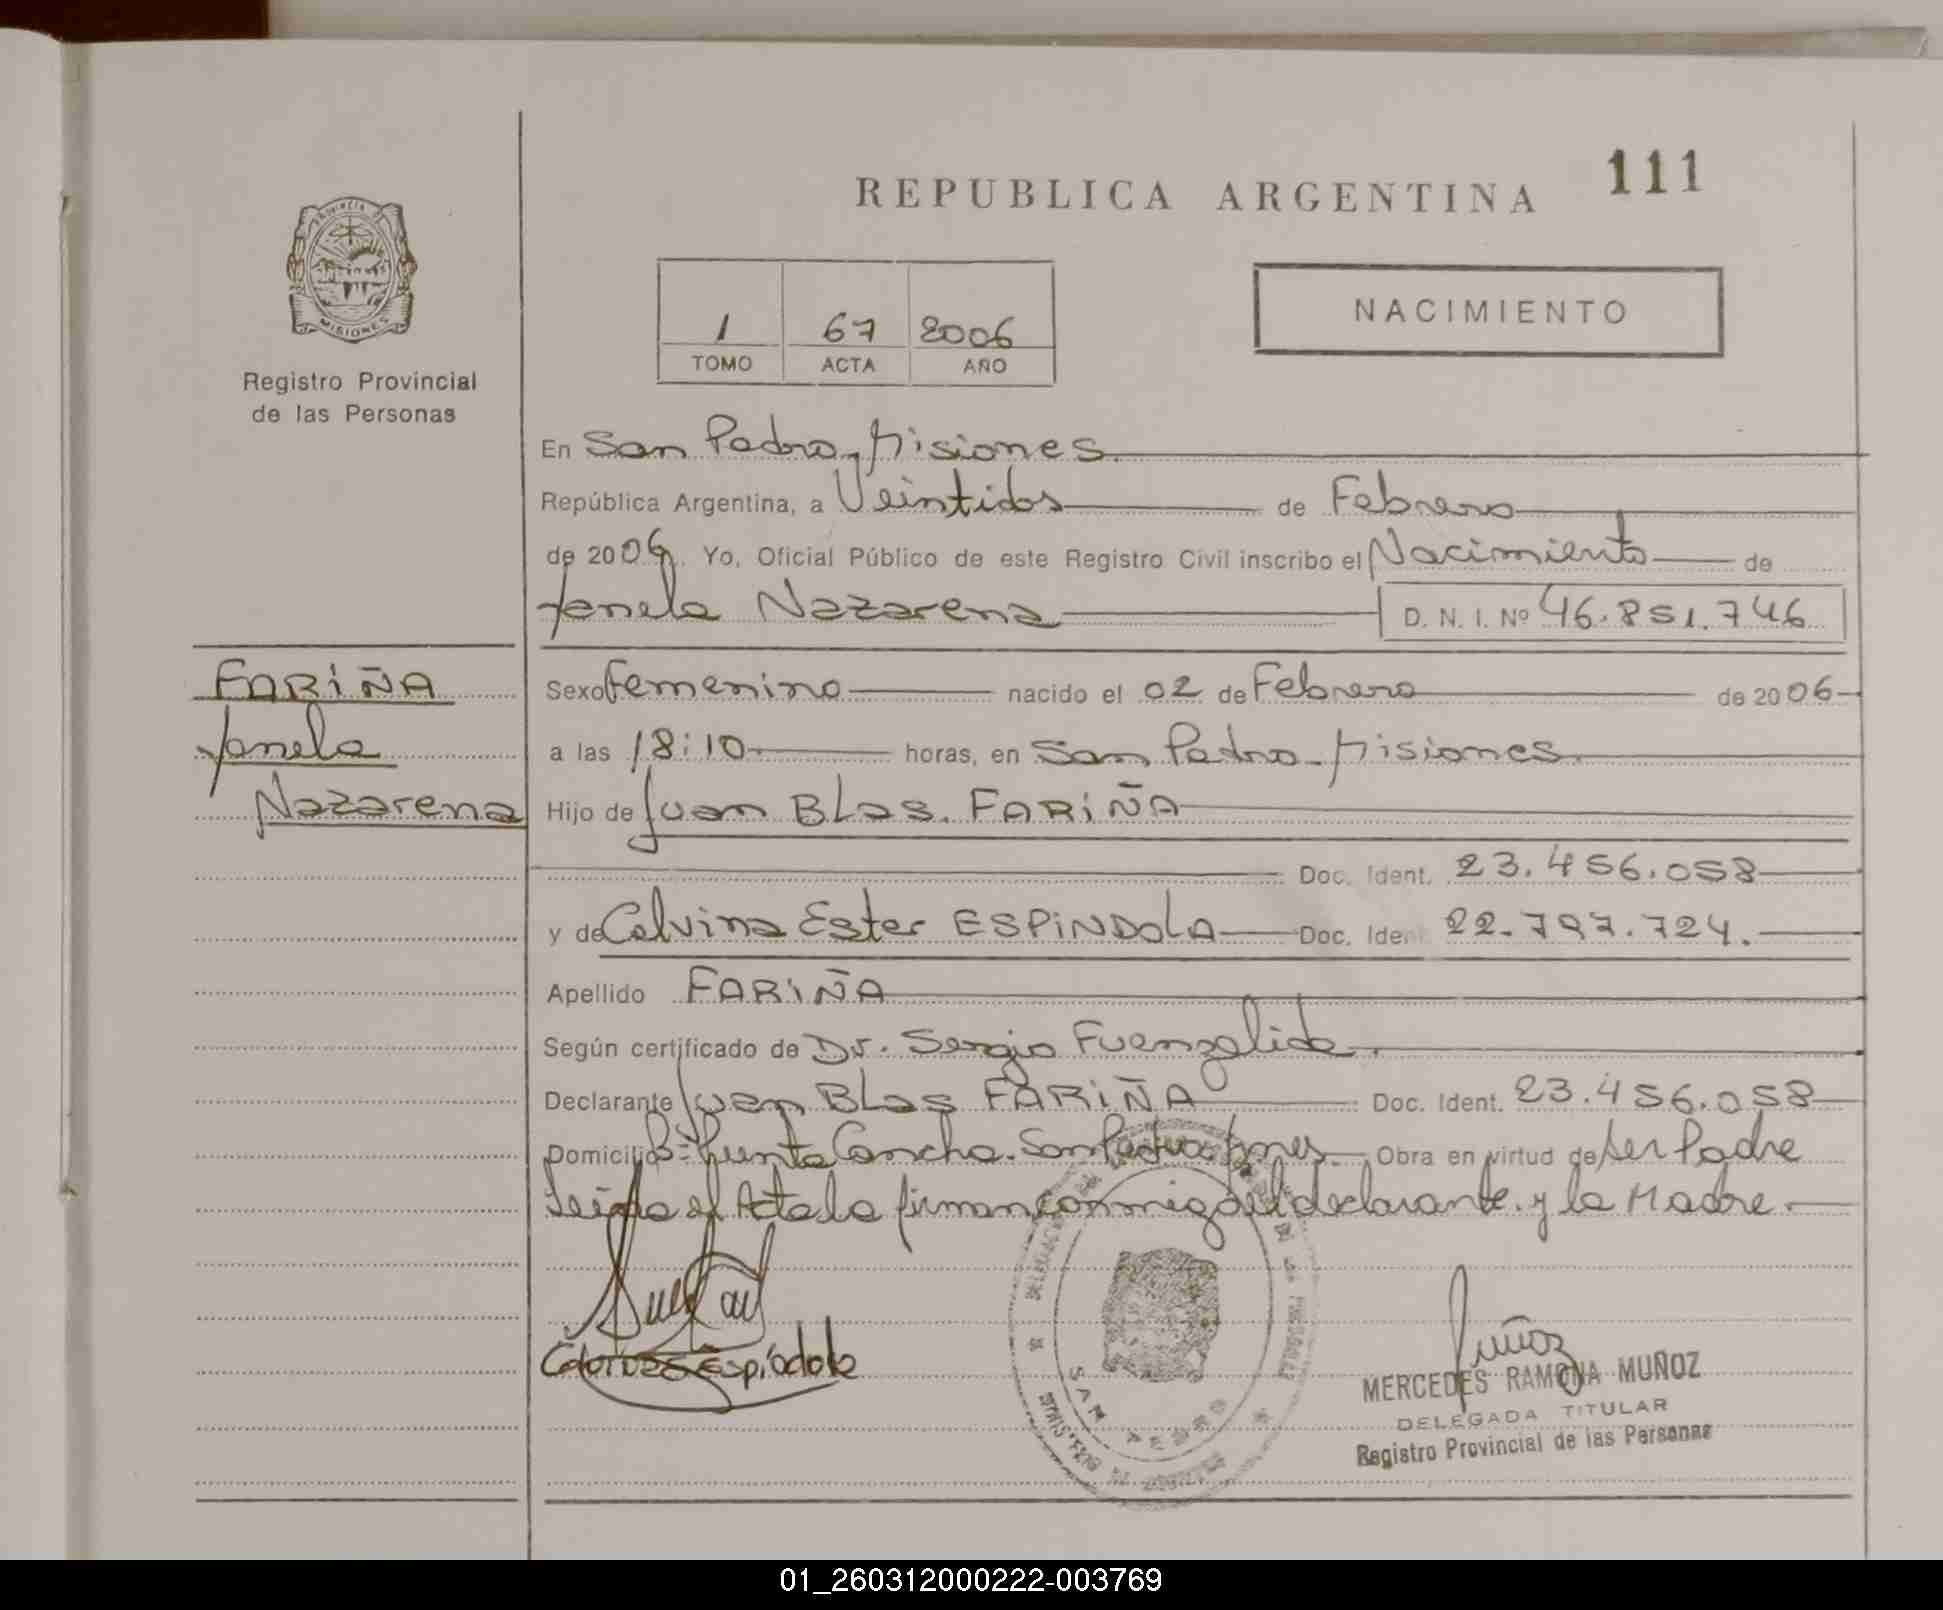 111
REPUBLICA ARGENTINA
PROVINCIA DE
MISIONES
Registro Provincial
de las Personas
1 67 2006
TOMO ACTA AÑO
NACIMIENTO
En San Pedro, Misiones.
República Argentina, a Veintidos de Febrero
de 2006. Yo, Oficial Público de este Registro Civil inscribo el Nacimiento de
Yanela Nazarena D. N. I. Nº 46.851.746
FARIÑA
Yanela
Nazarena
Sexo Femenino nacido el 02 de Febrero de 2006
a las 18:10 horas, en San Pedro - Misiones.
Hijo de Juan Blas. FARIÑA
Doc. Ident. 23.456.058
y de Calvina Ester ESPINDOLA Doc. Ident. 22.797.724.
Apellido FARIÑA
Según certificado de Dr. Sergio Fuenzalida.
Declarante Juan Blas FARIÑA Doc. Ident. 23.456.058
Domicilio Bº Puente Concha. San Pedro Mnes. Obra en virtud de ser Padre
Leida el Acta la firman conmigo el declarante y la Madre.
SAN PEDRO
Muñoz
MERCEDES RAMONA MUÑOZ
DELEGADA TITULAR
Registro Provincial de las Personas
01_260312000222-003769